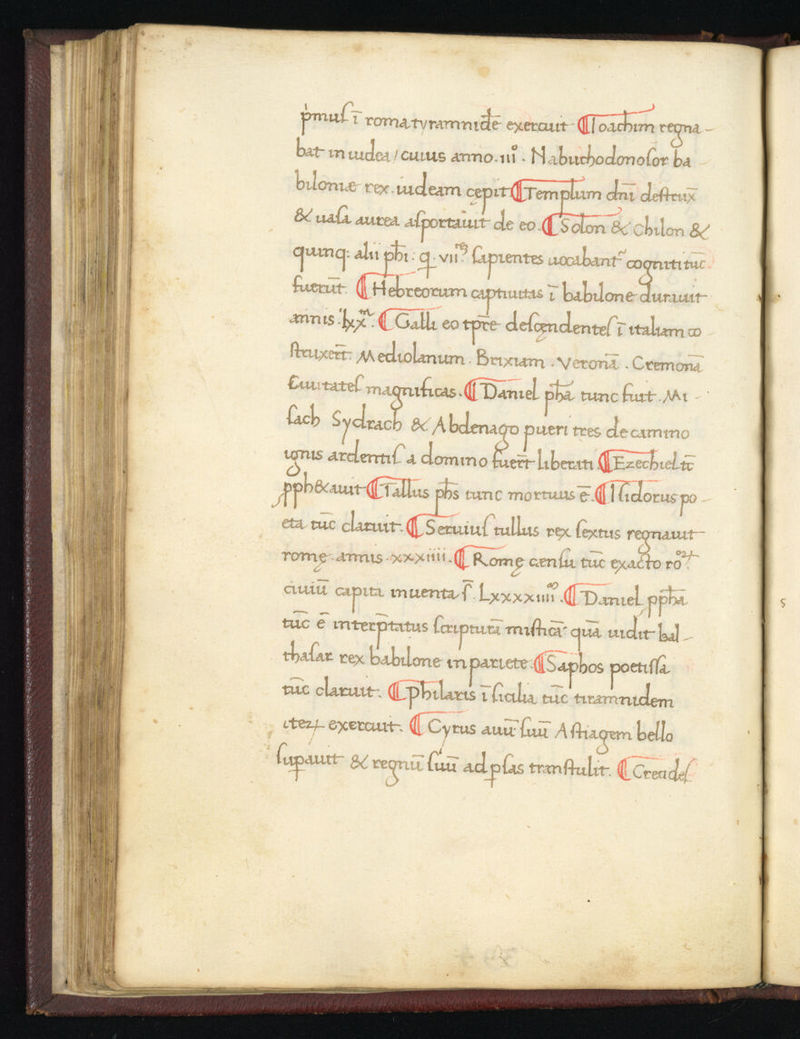 p̍muſ ī roma tyramnidē exercuit ¶ Ioachim regna-
bat in iudea / cuius anno .iiiº. Nabuchodonoſor ba
biloniæ rex iudeam cępit ¶ Templum dn̄i deſtrux̄
& uaſa aurea aſportauit de eo. ¶ Solon & Chilon &
quinq: alii ph̄i: q̄ .vii. ſapientes uocabant᷑ cogniti tūc
fuerūt. ¶ Hebreorum captiuitas ī babilone durauit
annis .lxx. ¶ Galli eo tp̄re deſcęndenteſ ī italiam co
ſtruxer̄t: Mediolanum . Brixiam . Veronā . Cremonā
Ciuitateſ magnificas. ¶ Daniel ph̄a tunc fuit. Mi-
ſach Sydrach & Abdenago pueri tres de camino
ignis ardentiſ a domino fuer̄t liberati ¶ Ezechiel tc̄
ꝓph&auit ¶ Tallus ph̄s tunc mortuus ē. ¶ Iſidorus po-
eta tūc claruit. ¶ Seruiuſ tullus rex ſextus regnauit
romę annis .xxxiiii. ¶ Romę cænſu tūc exacto roꝝ
ciuiū capita inuenta ſ̄ . Lxxxxiiii. ¶ Daniel ꝓph̄a
tūc ē interp̄tatus ſcripturā miſticā quā uidit bal-
thaſar rex babilone in pariete. ¶ Saphos poetiſſa
tūc claruit. ¶ Philaris ī ſicilia tūc tiramnidem
iteꝝ exercuit. ¶ Cyrus auū ſuū Aſtiagem bello
ſuꝑauit & regnū ſuū ad ꝑſas tranſtulit. ¶ Creudeſ